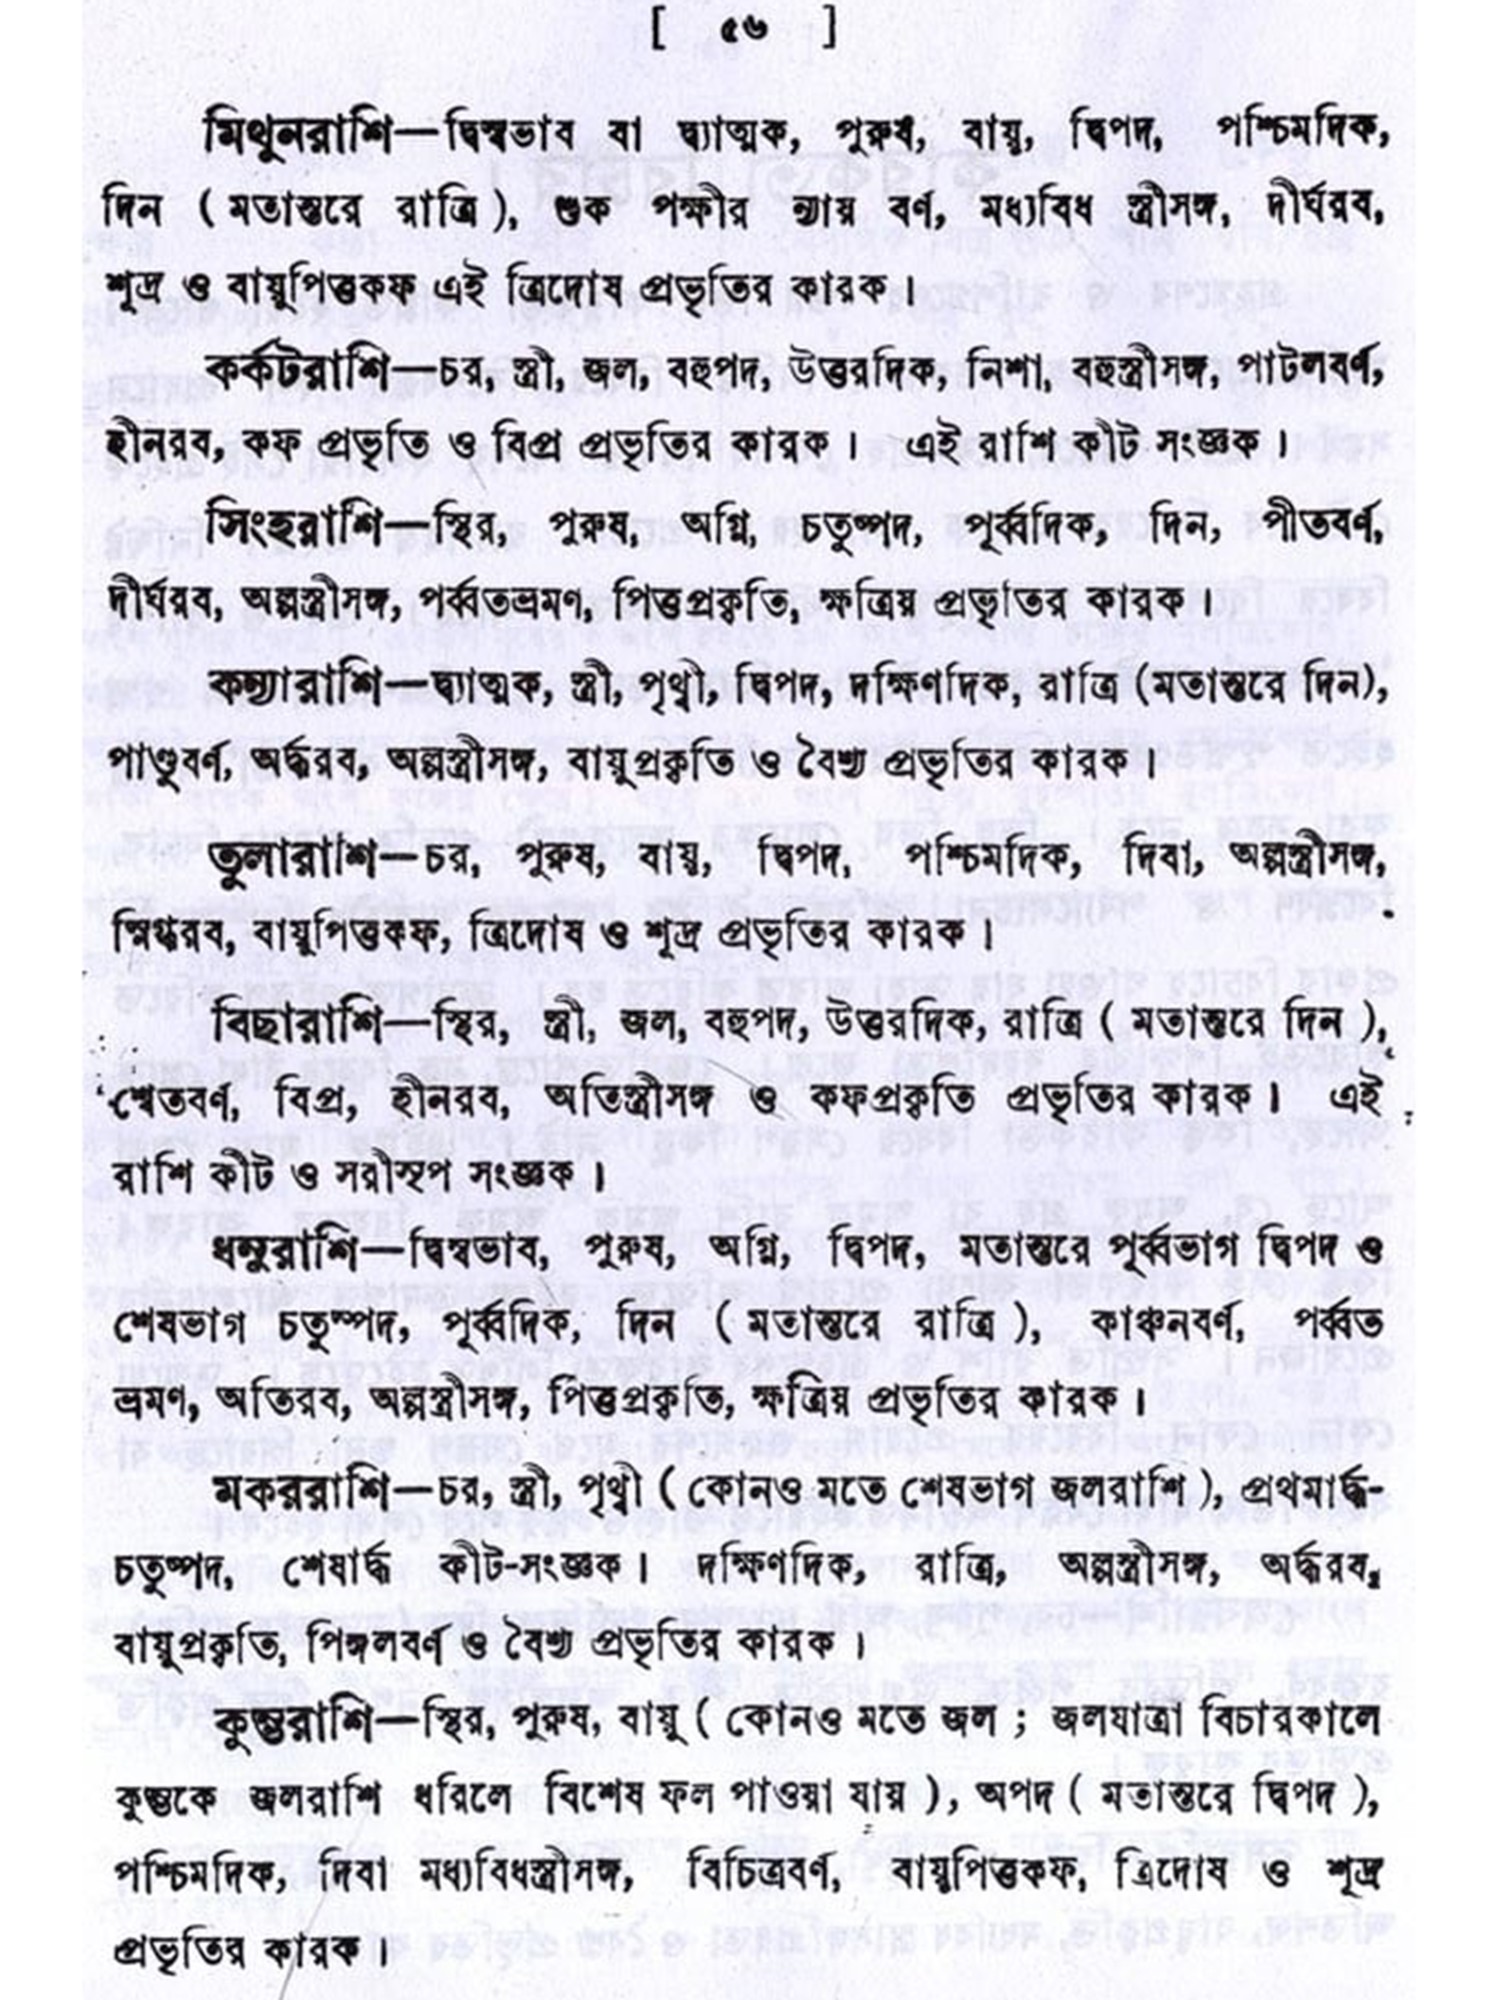 [ ৫৬ ]
মিথুনরাশি—দ্বিস্বভাব বা দ্ব্যাত্মক, পুরুষ, বায়ু, দ্বিপদ, পশ্চিমদিক,
দিন ( মতান্তরে রাত্রি ), শুক পক্ষীর ন্যায় বর্ণ, মধ্যবিধ স্ত্রীসঙ্গ, দীর্ঘরব,
শূদ্র ও বায়ুপিত্তকফ এই ত্রিদোষ প্রভৃতির কারক।
কর্কটরাশি—চর, স্ত্রী, জল, বহুপদ, উত্তরদিক, নিশা, বহুস্ত্রীসঙ্গ, পাটলবর্ণ,
হীনরব, কফ প্রভৃতি ও বিপ্র প্রভৃতির কারক। এই রাশি কীট সংজ্ঞক।
সিংহরাশি—স্থির, পুরুষ, অগ্নি, চতুষ্পদ, পূর্ব্বদিক, দিন, পীতবর্ণ,
দীর্ঘরব, অল্পস্ত্রীসঙ্গ, পর্ব্বতভ্রমণ, পিত্তপ্রকৃতি, ক্ষত্রিয় প্রভৃতির কারক।
কন্যারাশি—দ্ব্যাত্মক, স্ত্রী, পৃথ্বী, দ্বিপদ, দক্ষিণদিক, রাত্রি (মতান্তরে দিন),
পাণ্ডুবর্ণ, অর্দ্ধরব, অল্পস্ত্রীসঙ্গ, বায়ুপ্রকৃতি ও বৈশ্য প্রভৃতির কারক।
তুলারাশি—চর, পুরুষ, বায়ু, দ্বিপদ, পশ্চিমদিক, দিবা, অল্পস্ত্রীসঙ্গ,
স্নিগ্ধরব, বায়ুপিত্তকফ, ত্রিদোষ ও শূদ্র প্রভৃতির কারক।
বিছারাশি—স্থির, স্ত্রী, জল, বহুপদ, উত্তরদিক, রাত্রি ( মতান্তরে দিন ),
শ্বেতবর্ণ, বিপ্র, হীনরব, অতিস্ত্রীসঙ্গ ও কফপ্রকৃতি প্রভৃতির কারক। এই
রাশি কীট ও সরীসৃপ সংজ্ঞক।
ধনুরাশি—দ্বিস্বভাব, পুরুষ, অগ্নি, দ্বিপদ, মতান্তরে পূর্ব্বভাগ দ্বিপদ ও
শেষভাগ চতুষ্পদ, পূর্ব্বদিক, দিন ( মতান্তরে রাত্রি ), কাঞ্চনবর্ণ, পর্ব্বত
ভ্রমণ, অতিরব, অল্পস্ত্রীসঙ্গ, পিত্তপ্রকৃতি, ক্ষত্রিয় প্রভৃতির কারক।
মকররাশি—চর, স্ত্রী, পৃথ্বী ( কোনও মতে শেষভাগ জলরাশি ), প্রথমার্দ্ধ-
চতুষ্পদ, শেষার্দ্ধ কীট-সংজ্ঞক। দক্ষিণদিক, রাত্রি, অল্পস্ত্রীসঙ্গ, অর্দ্ধরব,
বায়ুপ্রকৃতি, পিঙ্গলবর্ণ ও বৈশ্য প্রভৃতির কারক।
কুম্ভরাশি—স্থির, পুরুষ, বায়ু ( কোনও মতে জল ; জলযাত্রা বিচারকালে
কুম্ভকে জলরাশি ধরিলে বিশেষ ফল পাওয়া যায় ), অপদ ( মতান্তরে দ্বিপদ ),
পশ্চিমদিক, দিবা মধ্যবিধস্ত্রীসঙ্গ, বিচিত্রবর্ণ, বায়ুপিত্তকফ, ত্রিদোষ ও শূদ্র
প্রভৃতির কারক।